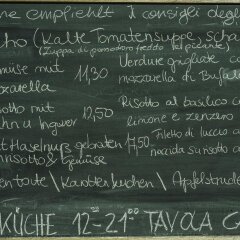 empfiehlt i consigli degl
cho (Kalte Tomatensuppe, scha
(Zuppa di pomodoro freddo
müse mit 11,30 Verdure grigliate co
zzarella mozzarella di Bufal
sotto mit 12,50 Risotto al basilico co
hn u Ingwer limone e zenzero
t Haselnuß gebraten 17,50 Filetto di luccio a
nrisotto & Gemüse nocciola su risotto a
entorte / Karottenkuchen / Apfelstrude
KÜCHE 12-21 00 TAVOLA C